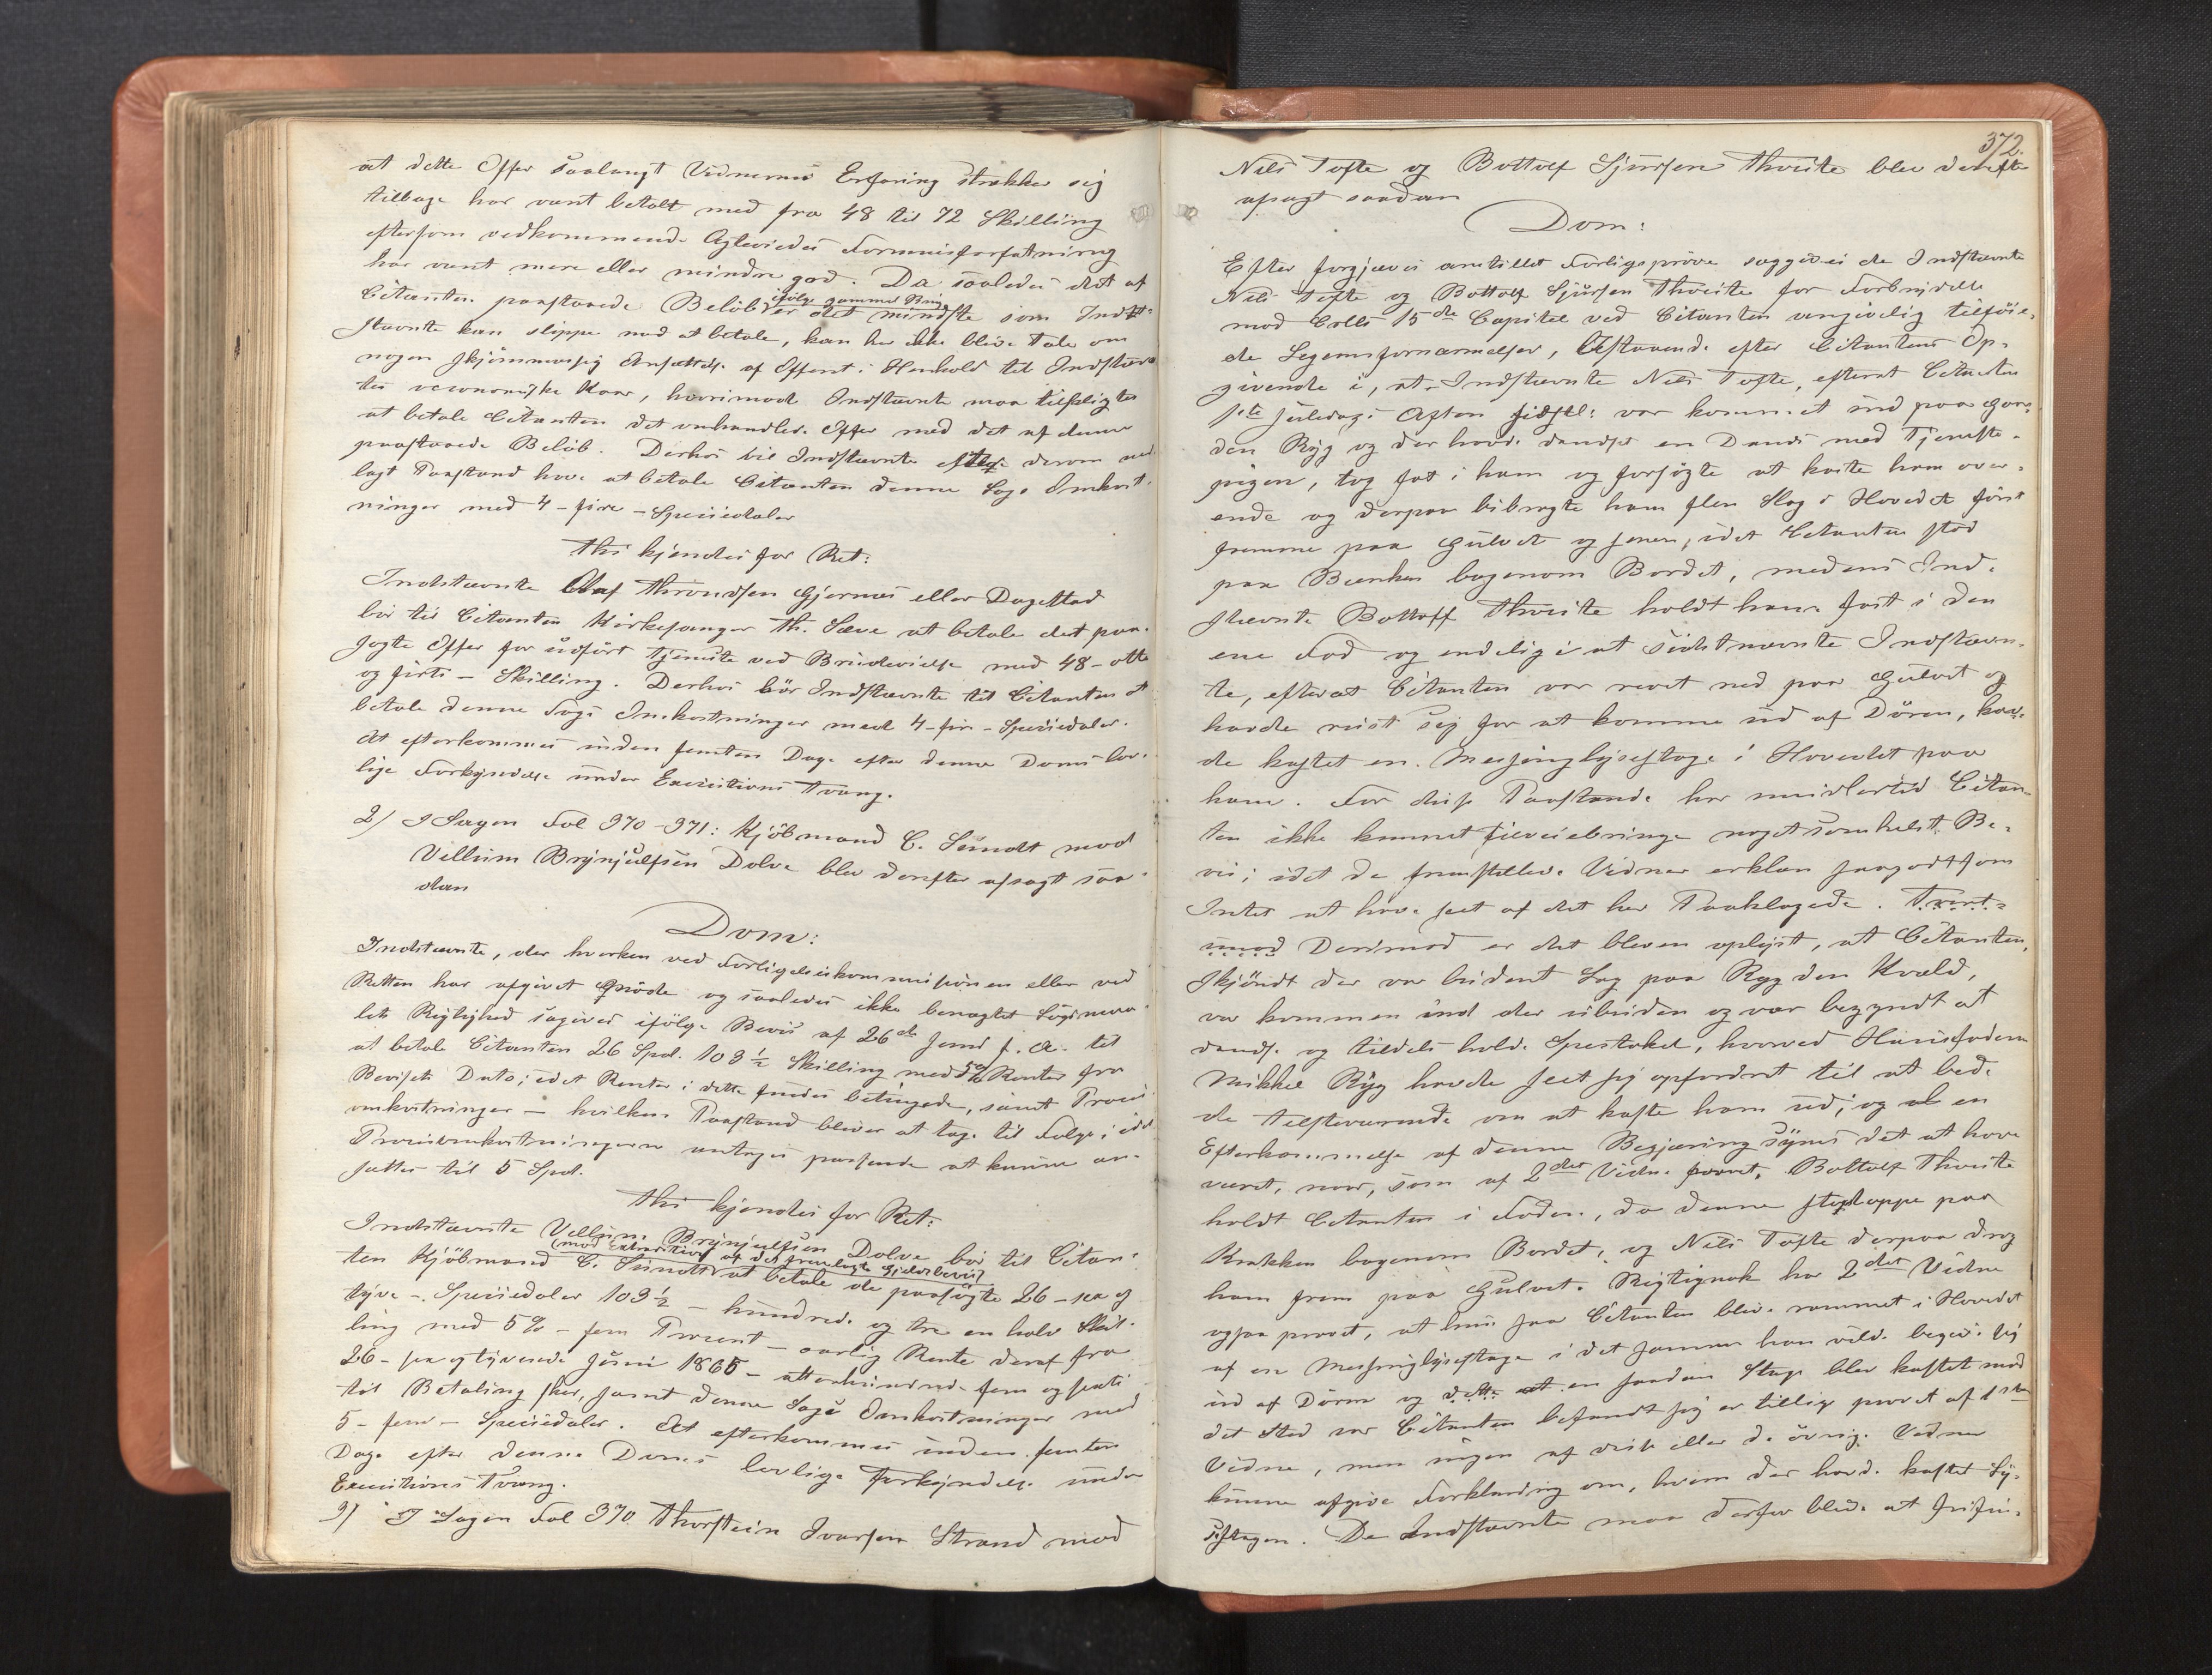 at dette Offer saalangt Vidnernes Erfaring strækker sig
tilbage har været betalt med fra 48 til 72 Skilling
eftersom vedkommende Ægteviedes Formuesforfatning
har været mere eller mindre god. Da saaledes det af
Citanten paastaaede Beløb ifølge gammel Brug er det mindste som Indst-
stævnte kan slippe med at betale, kan her ikke blive Tale om
nogen skjønsmæssig Ansættelse af Offeret i Henhold til Indstævn-
tes oeconomiske Kaar, hvorimod Indstævnte maa tilpligtes
at betale Citanten det omhandlede Offer med det af denne
paastaaede Beløb. Derhos vil Indstævnte efter derom ned-
lagt Paastand have at betale Citanten denne Sags Omkost-
ninger med 4 - fire - Speciedaler
Thi kjendes for Ret:
Indstævnte Olaf Throndsen Gjernes eller Dagestad
bør til Citanten Kirkesanger Th. Sæve at betale det paa-
søgte Offer for udført Tjeneste ved Brudevielse med 48 - otte
og firti - Skilling. Derhos bør Indstævnte til Citanten at
betale denne Sags Omkostninger med 4 - fire - Speciedaler.
At efterkommes inden femten Dage efter denne Doms lov-
lige Forkyndelse under Executions Tvang.
2) I Sagen Fol 370-371: Kjøbmand C. Sundt mod
Villum Brynjulfsen Dolve blev derefter afsagt saa-
dan
Dom:
Indstævnte, der hverken ved Forligelseskommissionen eller ved
Retten har afgivet Møde og saaledes ikke benægtet Søgsmaa-
lets Rigtighed sagives ifølge Bevis af 26de Juni f. A. til
at betale Citanten 26 Spd. 103 ½ Skilling med 5% Renter fra
Bevisets Dato; idet Renter i dette findes betingede, samt Proces-
omkostninger - hvilken Paastand bliver at tage til Følge, idet
Procesomkostningerne antages passende at kunne an-
sættes til 5 Spd.
Thi kjendes for Ret:
Indstævnte Villum Brynjulfsen Dolve bør til Citan-
ten Kjøbmand C. Sundt (mod Extradition af det fremlagte Gjeldsbevis) at betale de paasøgte 26 - sex og
tyve - Speciedaler 103 ½ - hundrede og tre en halv Skil-
ling med 5% - fem Procent - aarlig Rente deraf fra
26 - sex og tyvende Juni 1865 - attenhundrede fem og sexti
til Betaling sker, samt denne Sags Omkostninger med
5 - fem - Speciedaler. At efterkommes inden femten
Dage efter denne Doms lovlige Forkyndelse under
Executions Tvang.
3) I Sagen Fol 370 Thorstein Ivarsen Strand mod
372.
Nils Tofte og Bottolf Sjursen Thveite blev derefter
afsagt saadan
Dom:
Efter forgjæves anstillet Forligsprøve saggives de Indstævnte
Nils Tofte og Bottolf Sjursen Thveite for Forbrydelse
mod Crlls 15de Capitel ved Citanten angivelig tilføie-
de Legemsfornærmelser, bestaaende efter Citantens Op-
givende i, at Indstævnte Nils Tofte, efterat Citanten
1ste Juledags Aften sidstl: var kommet ind paa Gaar-
den Ryg og der havde dandset en Dands med Tjeneste-
pigen, tog fat i ham og forsøgte at kaste ham over-
ende og derpaa bibragte ham flere Slag i Hovedet først
fremme paa Gulvet og senere, idet Citanten stod
paa Bænken bagenom Bordet, medens Ind-
stævnte Bottolf Thveite holdt ham fast i den
ene Fod og endelig i at sidstnævnte Indstævn-
te, efterat Citanten var revet ned paa Gulvet og
havde reist sig for at komme ud af Døren, hav-
de kastet en Messinglysestage i Hovedet paa
ham. For disse Paastande har imidlertid Citan-
ten ikke kunnet tilveiebringe nogetsomhelst Be-
vis; idet de fremstillede Vidner erklære saagodtsom
Intet at have seet af det her Paaklagede. Tvert-
imod Derimod er det bleven oplyst, at Citanten,
skjøndt der var budent Lag paa Ryg den Kvæld,
var kommen ind der ubuden og var begyndt at
dandse og tildels holde Spectakel, hvorved Huusfaderen
Mikkel Ryg havde seet sig opfordret til at bede
de tilstedeværende om at kaste ham ud; og en
Efterkommelse af denne Begjæring synes det at have
været, naar, som af 2det Vidne provet, Bottolf Thveite
holdt Citanten i Foden, da denne stod oppe paa
Krakken bagenom Bordet, og Nils Tofte derpaa drog
ham frem paa Gulvet. Rigtignok har 2det Vidne
ogsaa provet, at hun saa Citanten blive rammet i Hovedet
af en Messinglysestage i det samme han vilde begive sig
ud af Døren og at en saadan Stage blev kastet mod
det Sted var Citanten befandt sig er tillige provet af 1ste
Vidne, men ingen af disse eller de øvrige Vidner
kunne afgive Forklaring om, hvem der havde kastet Ly-
sestagen. De Indstævnte maa derfor blive at frifin-